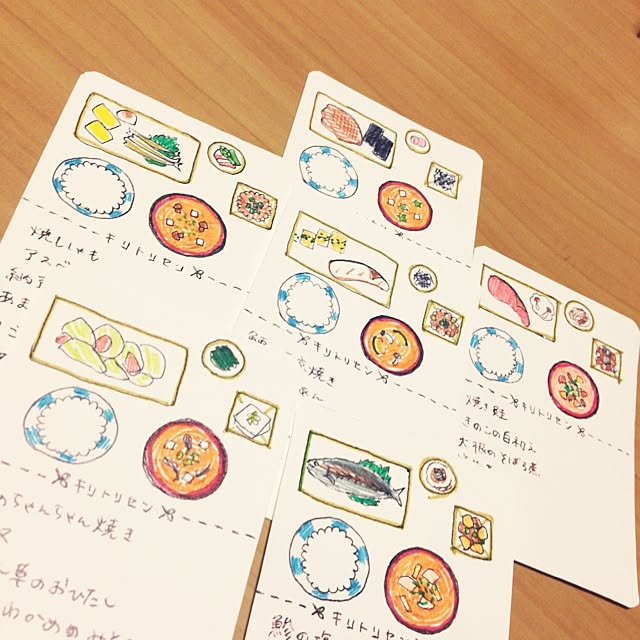 キリトリセン
焼ししゃも
アスパ
納豆
あま
キリトリセン
ちゃんちゃん焼き
のおひたし
わかめのみそ
キリトリセン
焼き
あん
キリトリセン
焼き鮭
きのこの白和え
大根のそぼろ煮
キリトリセン
鯵の塩